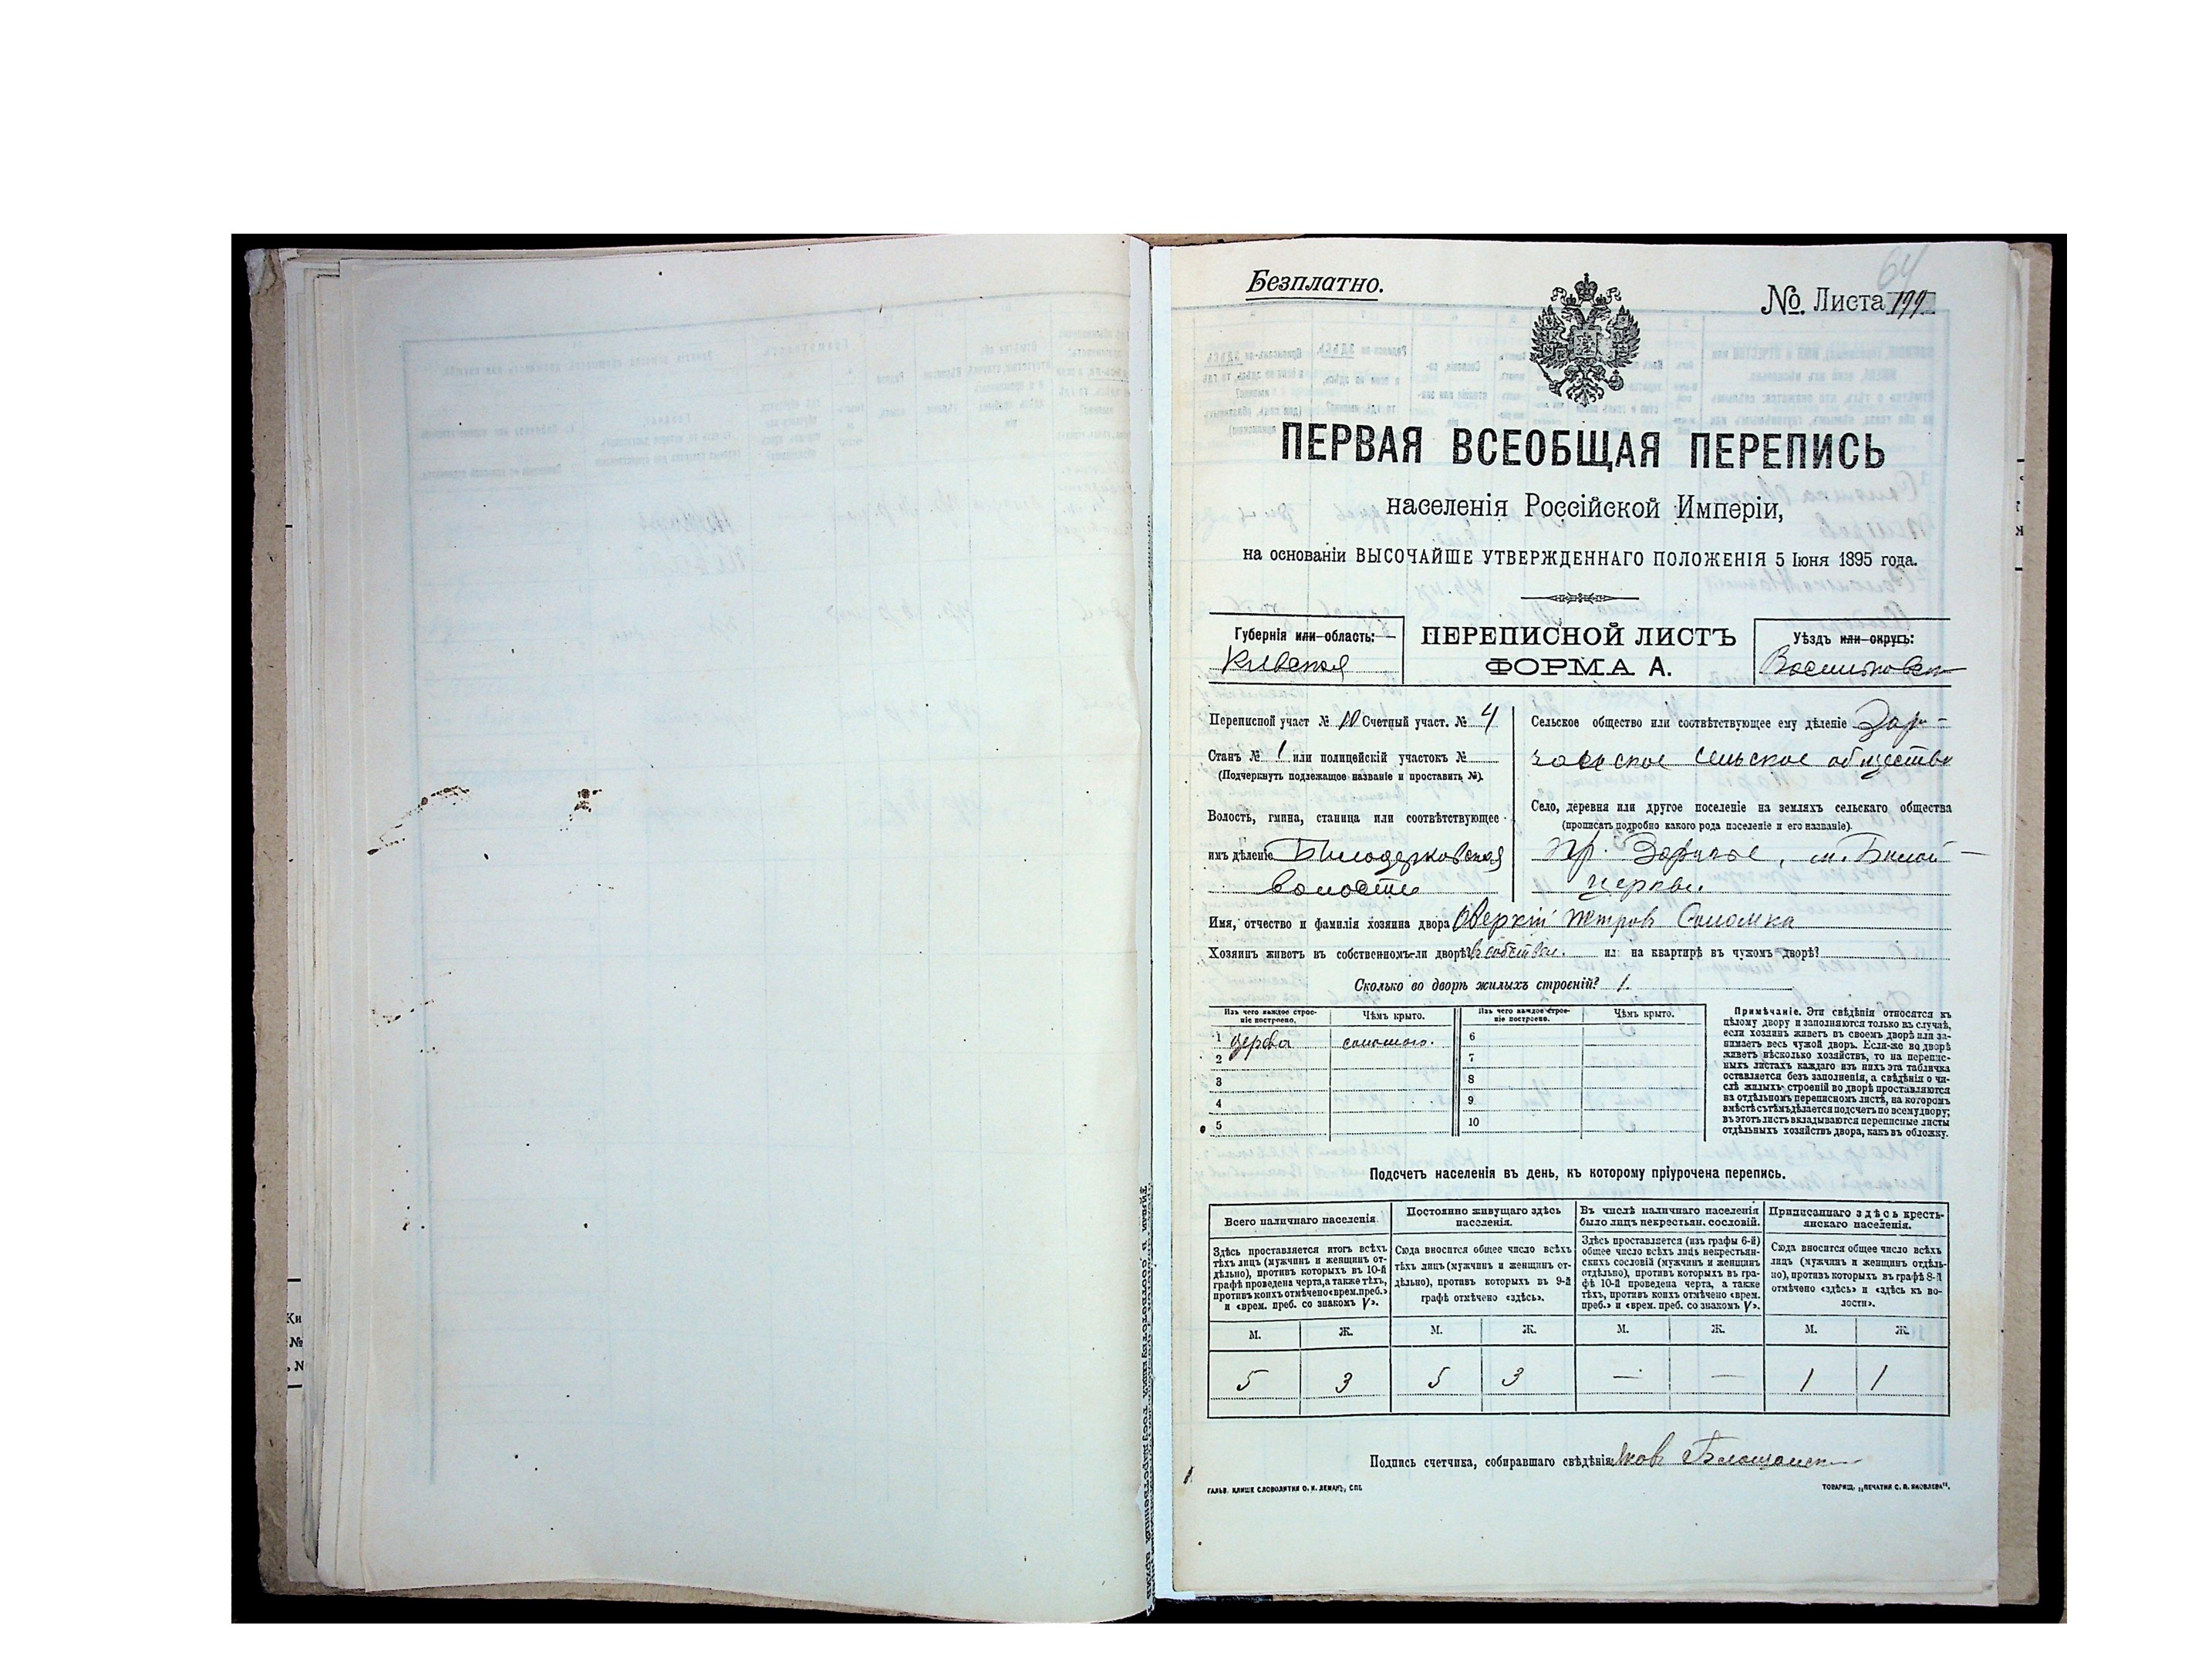 Безплатно.
64
№ Листа 199
ПЕРВАЯ ВСЕОБЩАЯ ПЕРЕПИСЬ
населенія Россійской Имперіи,
на основаніи ВЫСОЧАЙШЕ УТВЕРЖДЕННАГО ПОЛОЖЕНІЯ 5 Іюня 1895 года.
Губернія или область:
Кіевская
ПЕРЕПИСНОЙ ЛИСТЪ
ФОРМА А.
Уѣздъ или округъ:
Васильковск
Переписной участ № 10 Счетный участ. № 4
Станъ № 1 или полицейскій участокъ №
(Подчеркнуть подлежащое названіе и проставить №).
Волость, гмина, станица или соотвѣтствующее
имъ дѣленіе Билоцерковская
волость
Сельское общество или соотвѣтствующее ему дѣленіе Зар-
сельское общество
Село, деревня или другое поселеніе на земляхъ сельскаго общества
(прописать подробно какого рода поселеніе и его названіе).
пр. Заречье, м. Билой
церкви.
Имя, отчество и фамилія хозяина двора Аверкій Петров Соломка
Хозяинъ животъ въ собственномъ-ли дворѣ? в собствен. или на квартирѣ въ чужомъ дворѣ?
Сколько во дворѣ жилыхъ строеній? 1.
Изъ чего каждое строе-
ніе построено.
Чѣмъ крыто.
Изъ чего каждое строе-
ніе построено.
Чѣмъ крыто.
1 дерева соломою. 6
2 7
3 8
4 9
5 10
Примѣчаніе. Эти свѣдѣнія относятся къ
цѣлому двору и заполняются только въ случаѣ,
если хозяинъ живетъ въ своемъ дворѣ или за-
нимаетъ весь чужой дворъ. Если-же во дворѣ
живетъ нѣсколько хозяйствъ, то на перепис-
ныхъ листахъ каждаго изъ нихъ эта табличка
оставляется безъ заполненія, а свѣдѣнія о чи-
слѣ жилыхъ строеній во дворѣ проставляются
на отдѣльномъ переписномъ листѣ, на которомъ
вмѣстѣ съ тѣмъ дѣлается подсчетъ по всему двору;
въ этотъ листъ вкладываются переписные листы
отдѣльныхъ хозяйствъ двора, какъ въ обложку.
Подсчетъ населенія въ день, къ которому пріурочена перепись.
Всего наличнаго населенія
Здѣсь проставляется итогъ всѣхъ
тѣхъ лицъ (мужчинъ и женщинъ от-
дѣльно), противъ которыхъ въ 10-й
графѣ проведена черта, а также тѣхъ,
противъ коихъ отмѣчено «врем. преб.»
и «врем. преб. со знакомъ V».
Постоянно живущаго здѣсь
населенія.
Сюда вносится общее число всѣхъ
тѣхъ лицъ (мужчинъ и женщинъ от-
дѣльно), противъ которыхъ въ 9-й
графѣ отмѣчено «здѣсь».
Въ числѣ наличнаго населенія
было лицъ некрестьян. сословій.
Здѣсь проставляется (изъ графы 6-й)
общее число всѣхъ лицъ некрестьян-
скихъ сословій (мужчинъ и женщинъ
отдѣльно), противъ которыхъ въ гра-
фѣ 10-й проведена черта, а также
тѣхъ, противъ коихъ отмѣчено «врем.
преб.» и «врем. преб. со знакомъ V».
Приписаннаго здѣсь кресть-
янскаго населенія.
Сюда вносится общее число всѣхъ
лицъ (мужчинъ и женщинъ отдѣль-
но), противъ которыхъ въ графѣ 8-й
отмѣчено «здѣсь» и «здѣсь къ во-
лости».
М. Ж. М. Ж. М. Ж. М. Ж.
5 3 5 3 — — 1 1
Подпись счетчика, собиравшаго свѣдѣнія Яков
ГАЛЬВ. КЛИШЕ СЛОВОЛИТНИ О. И. ЛЕМАНЪ, СПБ.
ТОВАРИЩ. „ПЕЧАТНЯ С. П. ЯКОВЛЕВА".